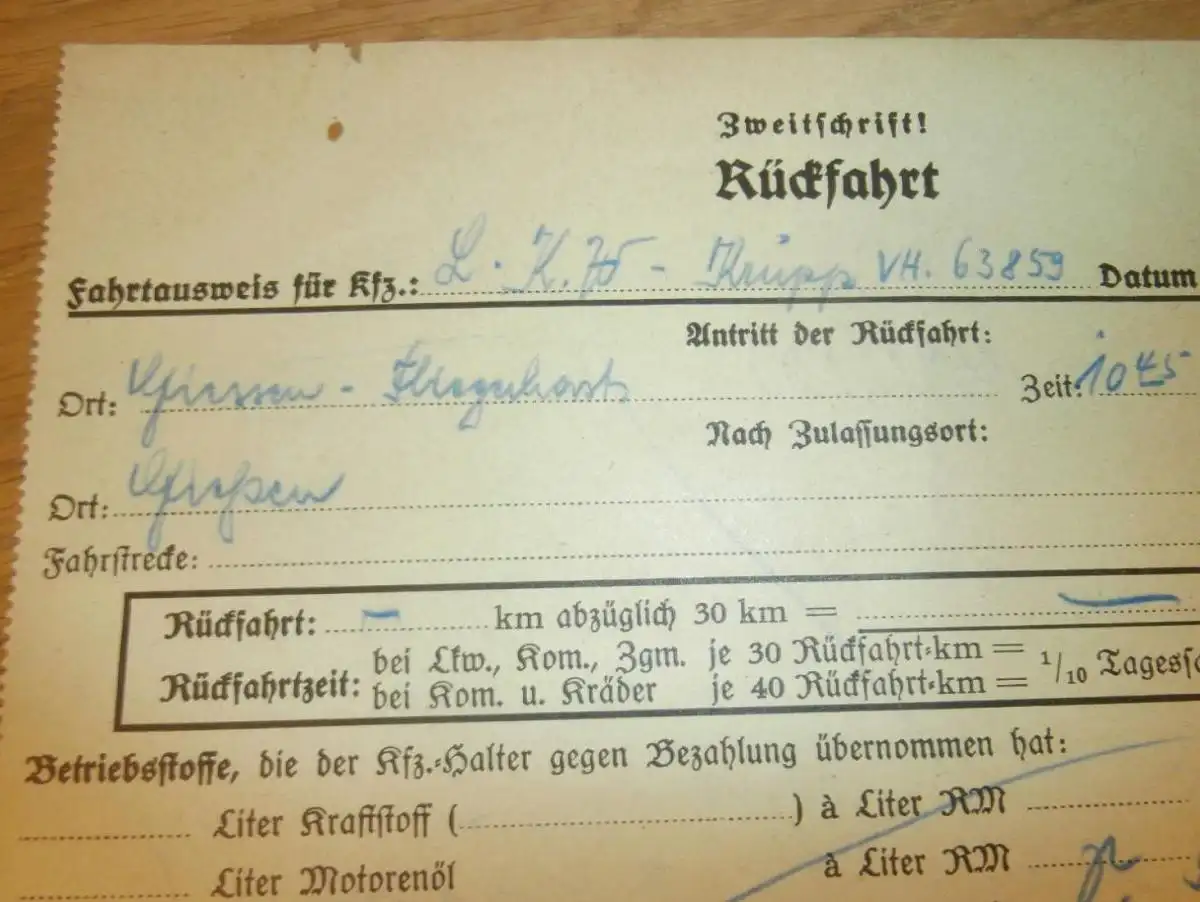 Zweitschrift!
Rückfahrt
Fahrtausweis für Kfz.: L.K.W - Krupp VH. 63859 Datum
Antritt der Rückfahrt:
Ort: Giessen - Fliegerhorst Zeit: 10 45
Nach Zulassungsort:
Ort: Gießen
Fahrstrecke:
Rückfahrt: – km abzüglich 30 km = –
Rückfahrtzeit: bei Lkw., Kom., Zgm. je 30 Rückfahrt-km = 1/10 Tagess
bei Kom. u. Kräder je 40 Rückfahrt-km =
Betriebsstoffe, die der Kfz.-Halter gegen Bezahlung übernommen hat:
Liter Kraftstoff ( ) à Liter RM
Liter Motorenöl à Liter RM